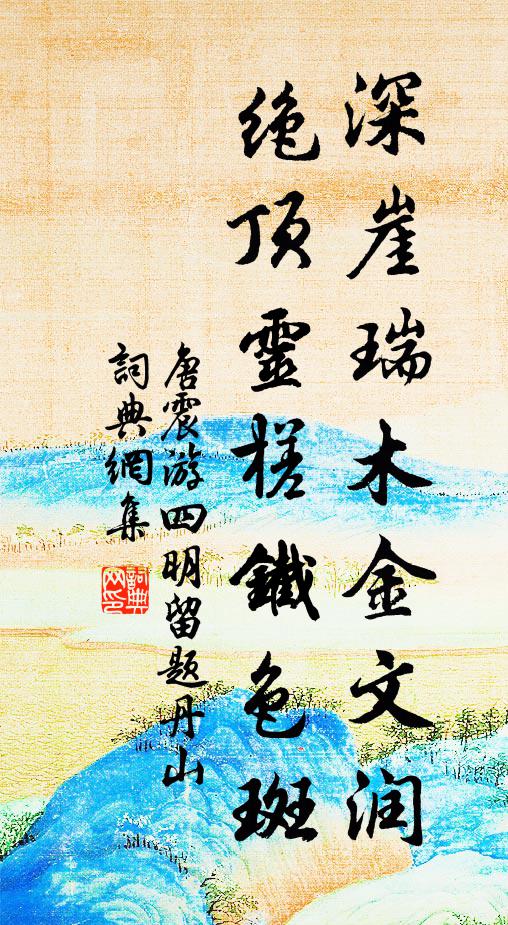 深崖瑞木金文润
绝顶靈槎鐵色斑
唐震游四明留题丹山
詞典網集
詞典网印